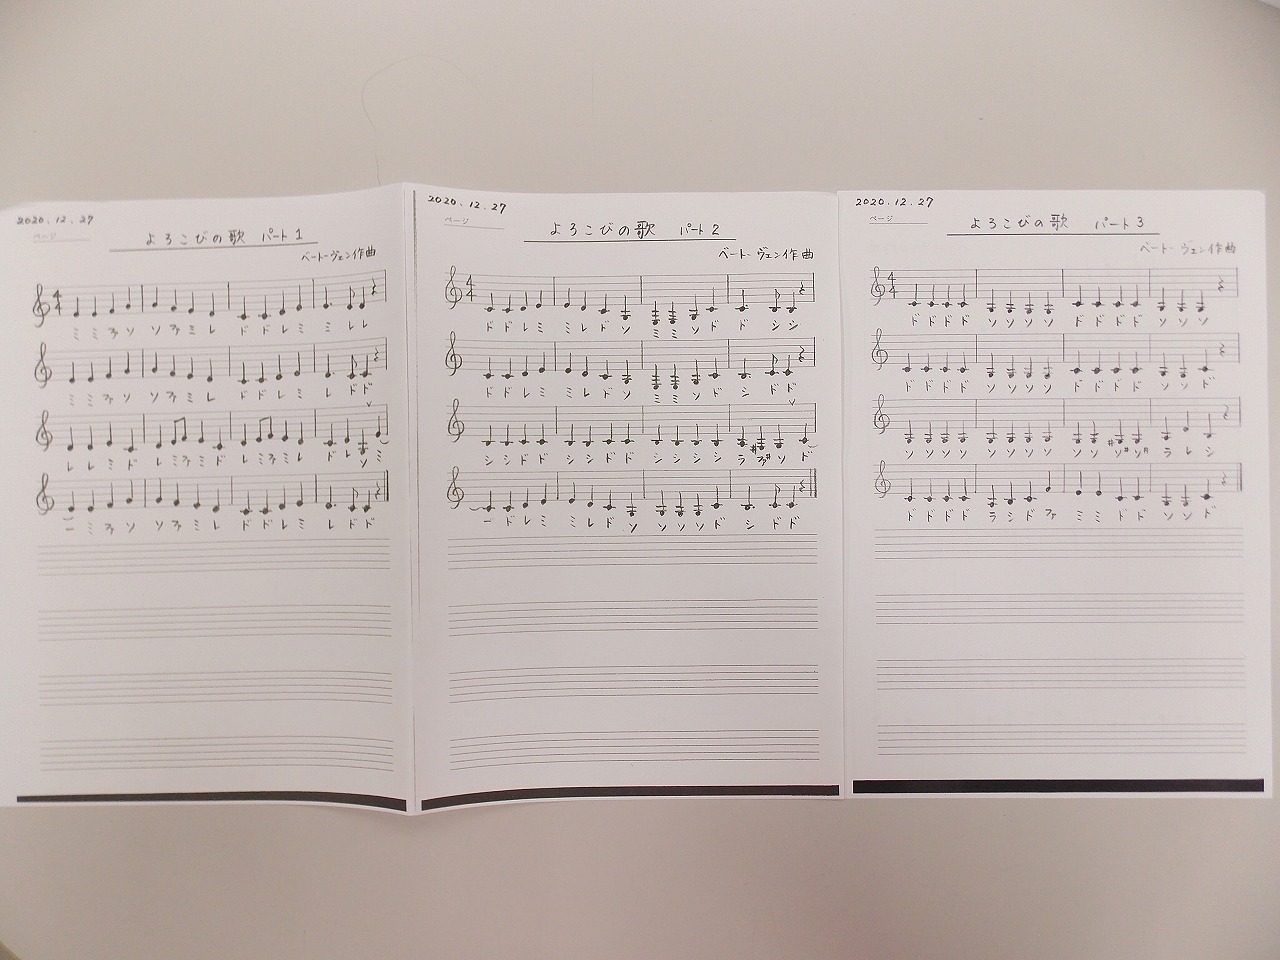 2020.12.27
ページ
よろこびの歌 パート1
ベートーヴェン作曲
ミ ミ ファ ソ ソ ファ ミ レ ド ド レ ミ ミ レ レ
ミ ミ ファ ソ ソ ファ ミ レ ド ド レ ミ レ ド ド
レ レ ミ ド レ ミ ファ ミ ド レ ミ ファ ミ レ ド レ ソ ミ
ー ミ ファ ソ ソ ファ ミ レ ド ド レ ミ レ ド ド
2020.12.27
ページ
よろこびの歌 パート2
ベートーヴェン作曲
ド ド レ ミ ミ レ ド ソ ミ ミ ソ ド ド シ シ
ド ド レ ミ ミ レ ド ソ ミ ミ ソ ド シ ド ド
シ シ ド ド シ シ ド ド シ シ シ シ ラ ファ# ソ ド
ー ド レ ミ ミ レ ド ソ ソ ソ ソ ド シ ド ド
2020.12.27
ページ
よろこびの歌 パート3
ベートーヴェン作曲
ド ド ド ド ソ ソ ソ ソ ド ド ド ド ソ ソ ソ
ド ド ド ド ソ ソ ソ ソ ド ド ド ド ソ ソ ド
ソ ソ ソ ソ ソ ソ ソ ソ ソ ソ ソ# ソ# ラ レ シ
ド ド ド ド ラ シ ド ファ ミ ミ ド ド ソ ソ ド